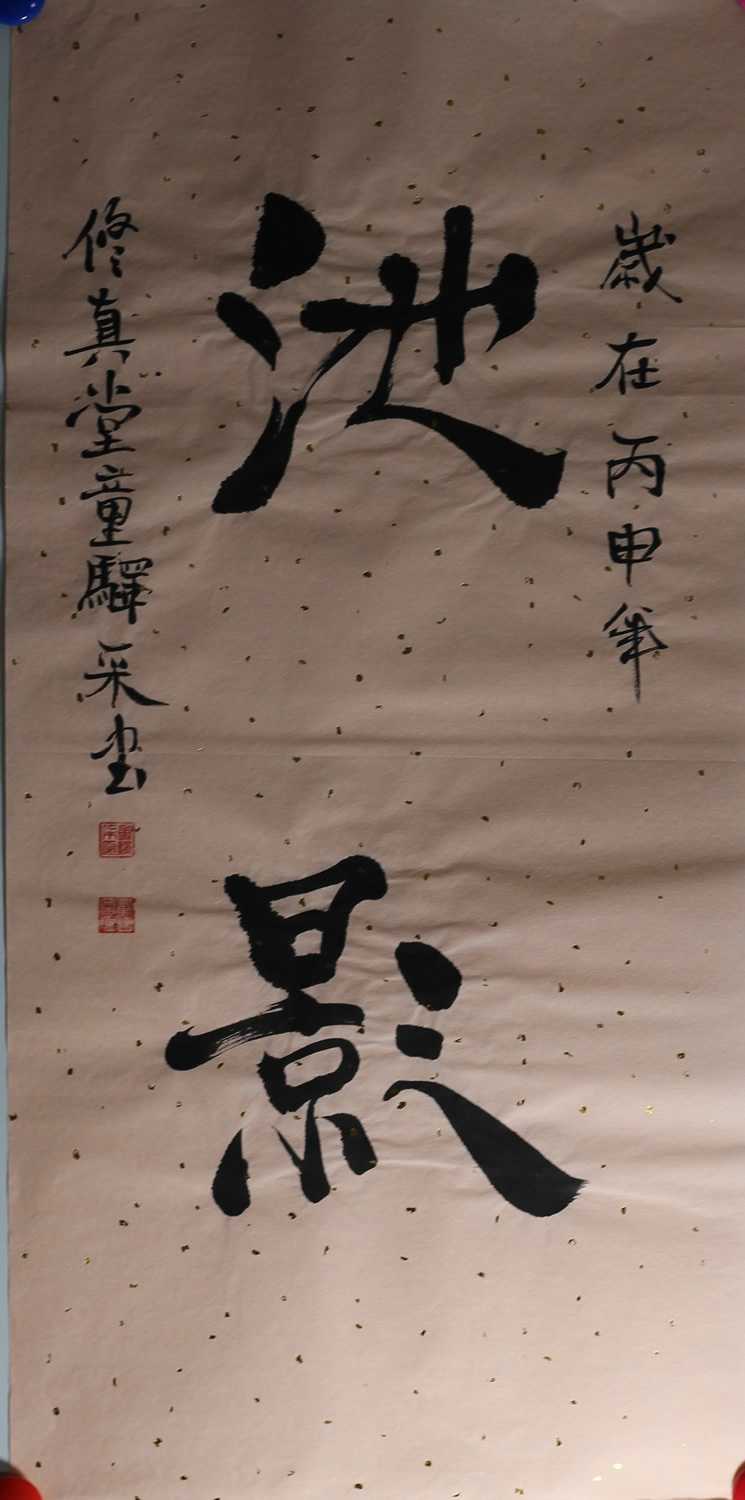 歲在丙申年
池影
修真堂童驛采书